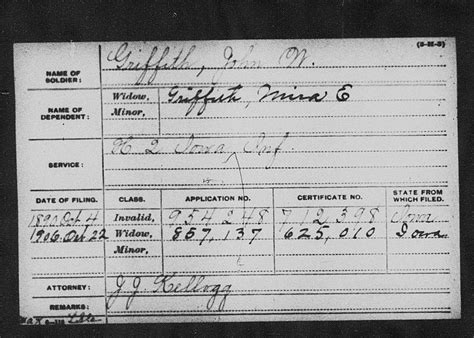 (3-M-3)
NAME OF SOLDIER: Griffith, John W.
NAME OF DEPENDENT: Widow, Griffith, Mira E
Minor,
SERVICE: K 2 Iowa Inf.
DATE OF FILING. CLASS. APPLICATION NO. CERTIFICATE NO. STATE FROM WHICH FILED.
Oct 4 Invalid, 954248 712,398 Iowa
1906 Oct 22 Widow, 857,137 625,010 Iowa
Minor,
ATTORNEY: J.J. Kellogg
REMARKS: